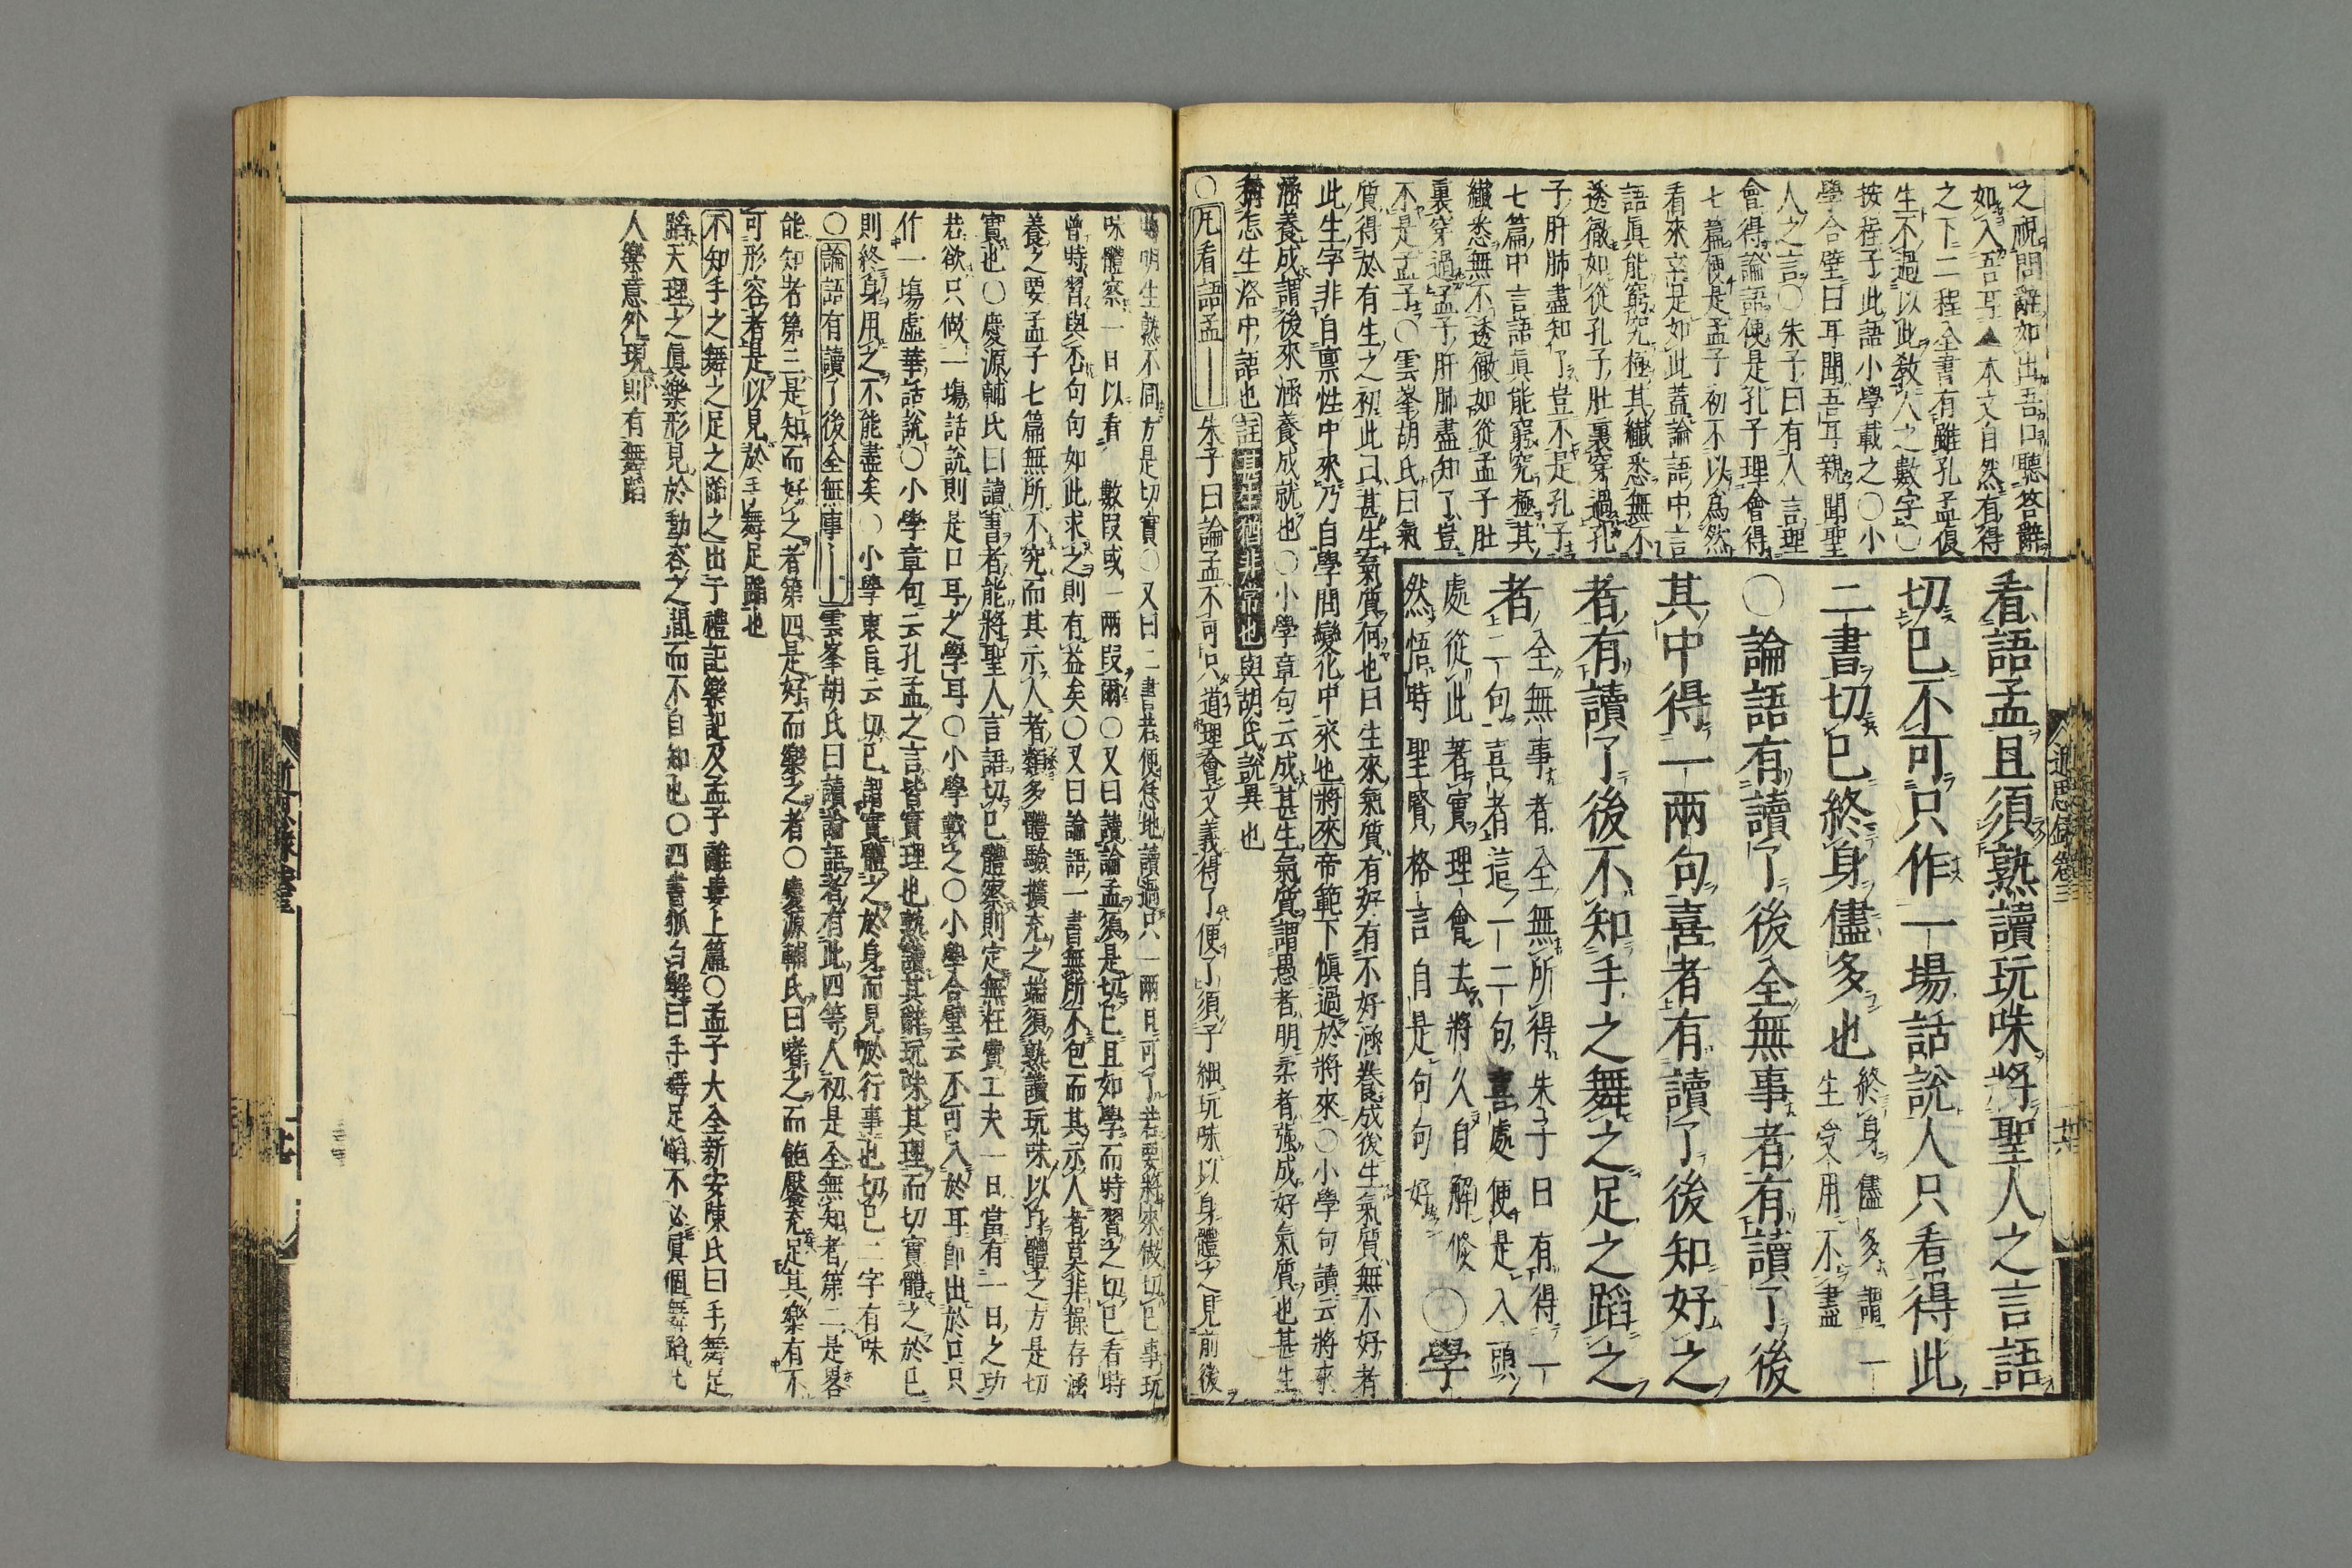 之視問辭如出吾口聽答辭
如入吾耳▲本文自然有得
之下二程全書有雖孔孟復
生不過以此教人之數字〇
按程子此語小學載之〇小
學合璧曰耳聞吾耳親聞聖
人之言〇朱子曰有人言理
會得論語便是孔子理會得
七篇便是孟子初不以爲然
看來亦是如此蓋論語中言
語眞能窮究極其纖悉無不
透徹如從孔子肚裏穿過孔
子肝肺盡知了豈不是孔子
七篇中言語眞能窮究極其
纖悉無不透徹如從孟子肚
裏穿過孟子肝肺盡知了豈
不是孟子〇雲峯胡氏曰氣
質得於有生之初此曰甚生氣質何也曰生來氣質有好有不好涵養成後生氣質無不好者
此生字非自稟性中來乃自學問變化中來也將來帝範下愼過於將來〇小學句讀云將來
涵養成謂後來涵養成就也〇小學章句云成甚生氣質謂愚者明柔者强成好氣質也甚生
猶怎生洛中語也註甚生猶非常也與胡氏說異也
〇凡看語孟――朱子曰論孟不可只道理會文義得了便了須子細玩味以身體之見前後
近思録卷三
廿六
看語孟且須熟讀玩味將聖人之言語
切已不可只作一場話說人只看得此
二書切已終身儘多也終身儘多謂一
生受用不盡
〇論語有讀了後全無事者有讀了後
其中得一兩句喜者有讀了後知好之
者有讀了後不知手之舞之足之蹈之
者全無事者全無所得朱子曰有得一
二句喜者這一二句喜處便是入頭
處從此著實理會去將久自解倐
然悟時聖賢格言自是句句好〇學
晦明生熟不同方是切實〇又曰二書若便恁地讀過只一兩日可了若要將來做切已事玩
味體察一日以看數段或一兩段爾〇又曰讀論孟須是切已且如學而時習之切已看時
曾時習與否句句如此求之則有益矣〇又曰論語一書無所不包而其示人者莫非操存涵
養之要孟子七篇無所不究而其示人者類多體驗擴充之端須熟讀玩味以身體之方是切
實也〇慶源輔氏曰讀書者能將聖人言語切已體察則定無枉費工夫一日當有一日之功
若欲只做一場話說則是口耳之學耳〇小學載之〇小學合璧云不可入於耳卽出於口只
作一塲虛華話說〇小學章句云孔孟之言皆實理也熟讀其辭玩味其理而切實體之於已
則終身用之不能盡矣〇小學衷旨云切已謂實體之於身而見於行事也切已二字有味
〇論語有讀了後全無事――雲峯胡氏曰讀論語者有此四等人初是全無知者第二是畧
能知者第三是知而好之者第四是好而樂之者〇慶源輔氏曰嗜之而飽饜充足其樂有不
可形容者是以見於手舞足蹈也
不知手之舞之足之蹈之出于禮記樂記及孟子離婁上篇〇孟子大全新安陳氏曰手舞足
蹈天理之眞樂形見於動容之間而不自知也〇四書狐白解曰手舞足蹈不必眞個舞蹈凡
人樂意外現則有舞蹈